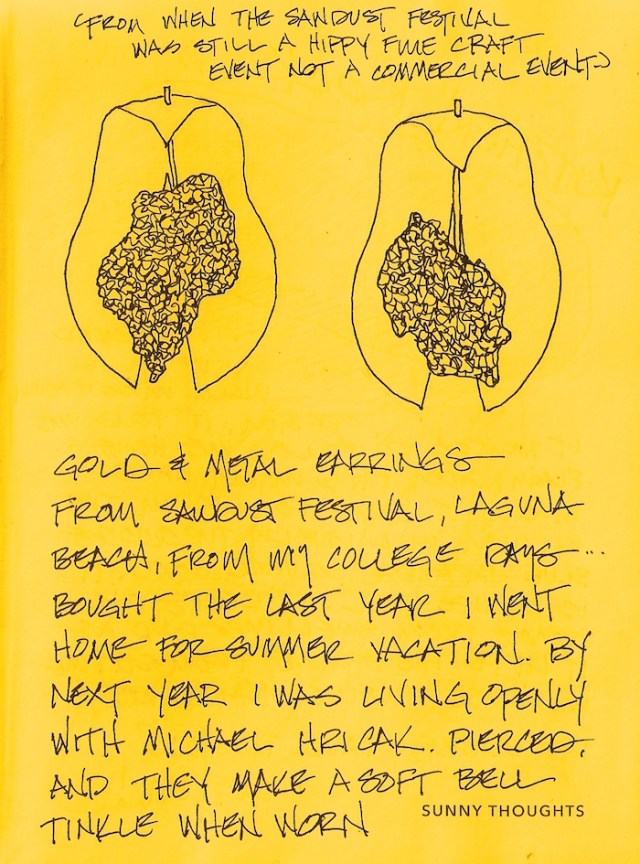 (FROM WHEN THE SAWDUST FESTIVAL
WAS STILL A HIPPY FINE CRAFT
EVENT NOT A COMMERCIAL EVENT)
GOLD & METAL EARRINGS
FROM SAWDUST FESTIVAL, LAGUNA
BEACH, FROM MY COLLEGE DAYS...
BOUGHT THE LAST YEAR I WENT
HOME FOR SUMMER VACATION. BY
NEXT YEAR I WAS LIVING OPENLY
WITH MICHAEL HRICAK. PIERCED,
AND THEY MAKE A SOFT BELL
SUNNY THOUGHTS
TINKLE WHEN WORN